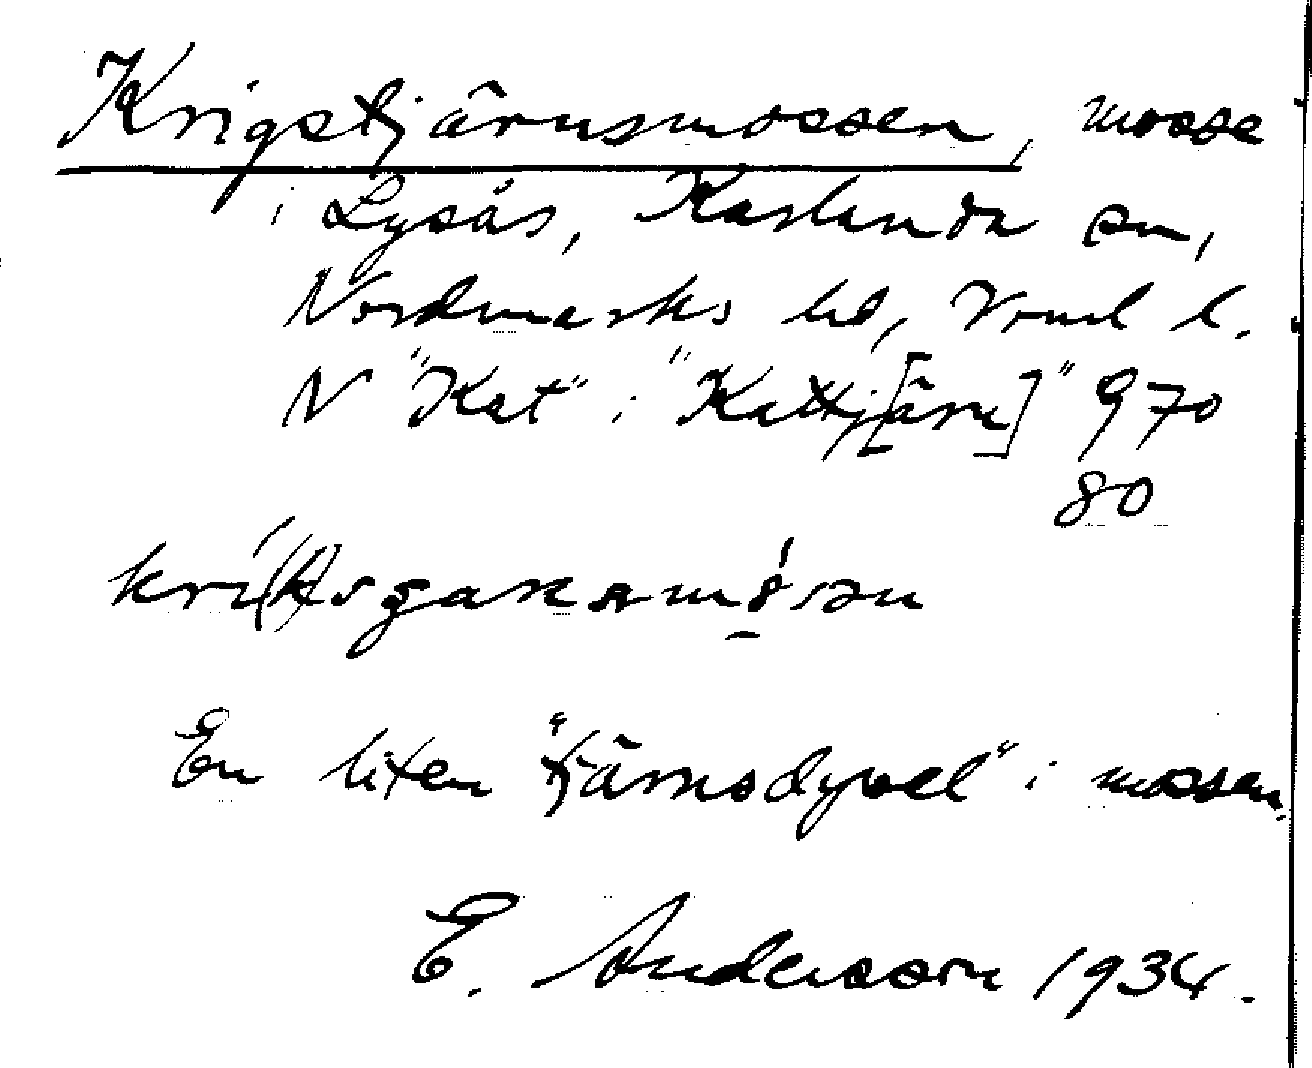 Krigstjärnsmossen, mosse
i Lysås, Karlanda sn,
Nordmarks hd, Vrml l.
N "Kat" i "Kattj[ärn]" 970
80
En liten "tjärnsdyvel" i mossen.
E. Andersson 1934.